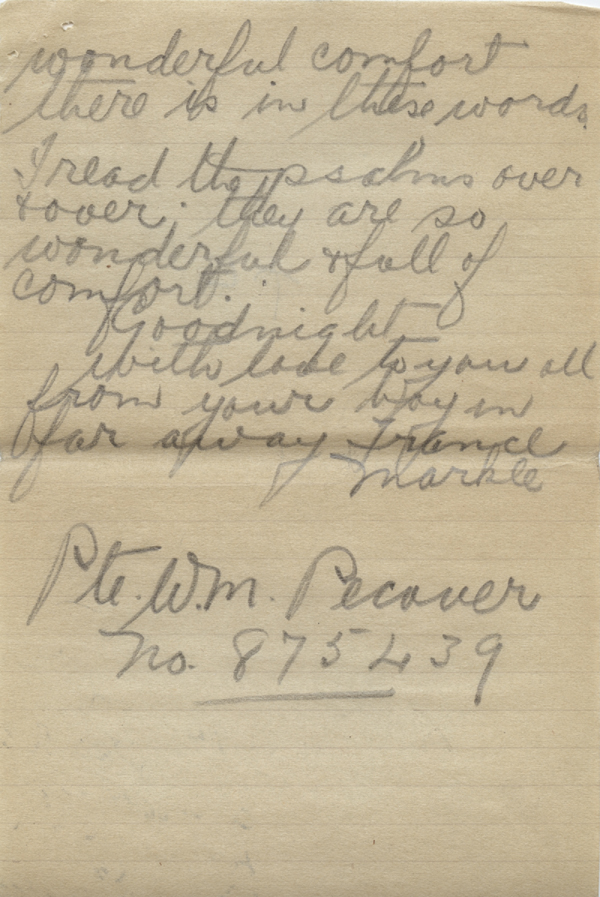 wonderful comfort
there is in these words
I read the psalms over
& over; they are so
wonderful & full of
comfort.
Goodnight
with love to you all
from your boy in
far away France
Markle
Pte. W.M. Pecover
no. 875439